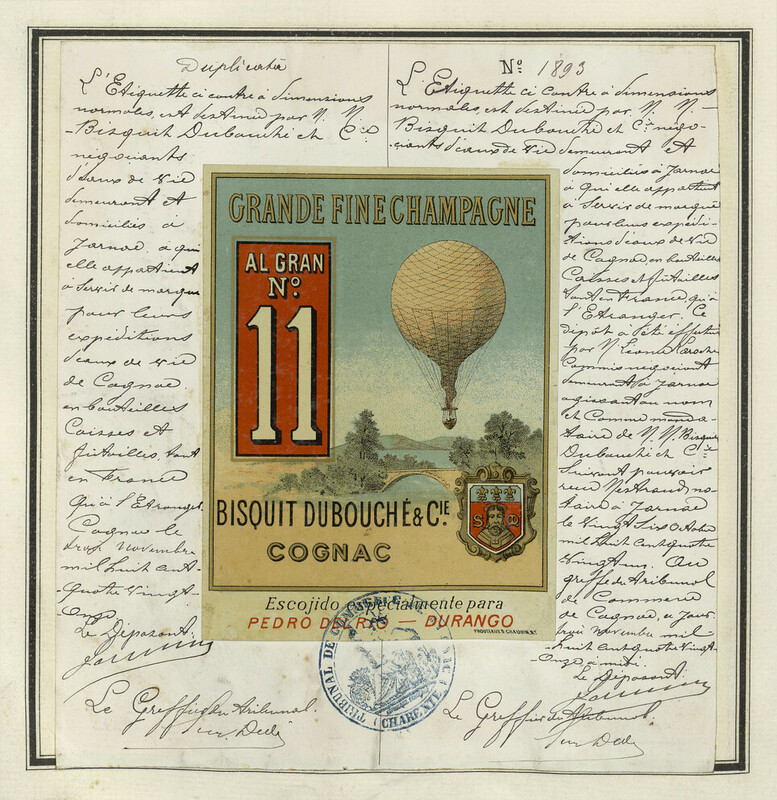 Duplicata
L'Etiquette ci contre à dimensions
normales, est destinée par M. M.
Bisquit Dubouché et Cie
négociants
d'eaux de vie
demeurant et
domiciliés à
Jarnac à qui
elle appartient
à servir de marque
pour leurs
expéditions
d'eaux de vie
de Cognac
en bouteilles
Caisses et
futailles, tant
en France
qu'à l'Etranger.
Cognac le
trois novembre
mil huit cent
quatre vingt
onze
Le Déposant
Le Greffier du tribunal
GRANDE FINE CHAMPAGNE
AL GRAN
No.
11
BISQUIT DUBOUCHÉ & CIE.
COGNAC
S D
Escojido especialmente para
PEDRO DEL RIO — DURANGO
TRIBUNAL DE COMMERCE DE COGNAC
(CHARENTE)
No. 1893
L'Etiquette ci contre à dimensions
normales, est destinée par M. M.
Bisquit Dubouché et Cie négo-
ciants d'eaux de vie demeurant et
domiciliés à Jarnac
à qui elle appartient
à servir de marque
pour leurs expédi-
tions d'eaux de vie
de Cognac, en bouteilles
Caisses et futailles
tant en France qu'à
l'Etranger. Ce
dépôt a été effectué
par M. Laroche
Commis négociant
demeurant à Jarnac
agissant au nom
et comme manda-
taire de M. M. Bisquit
Dubouché et Cie
suivant pouvoir
reçu no-
taire à Jarnac
le vingt six octobre
mil huit cent quatre
vingt onze. Au
greffe du tribunal
de Commerce
de Cognac, ce jour
trois novembre mil
huit cent quatre vingt
onze à midi.
Le Déposant
Le Greffier du tribunal